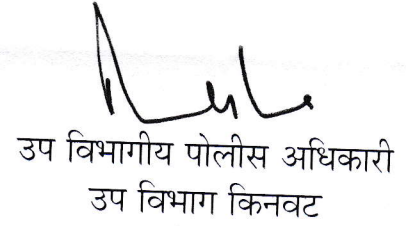 उप विभागीय पोलीस अधिकारी
उप विभाग किनवट